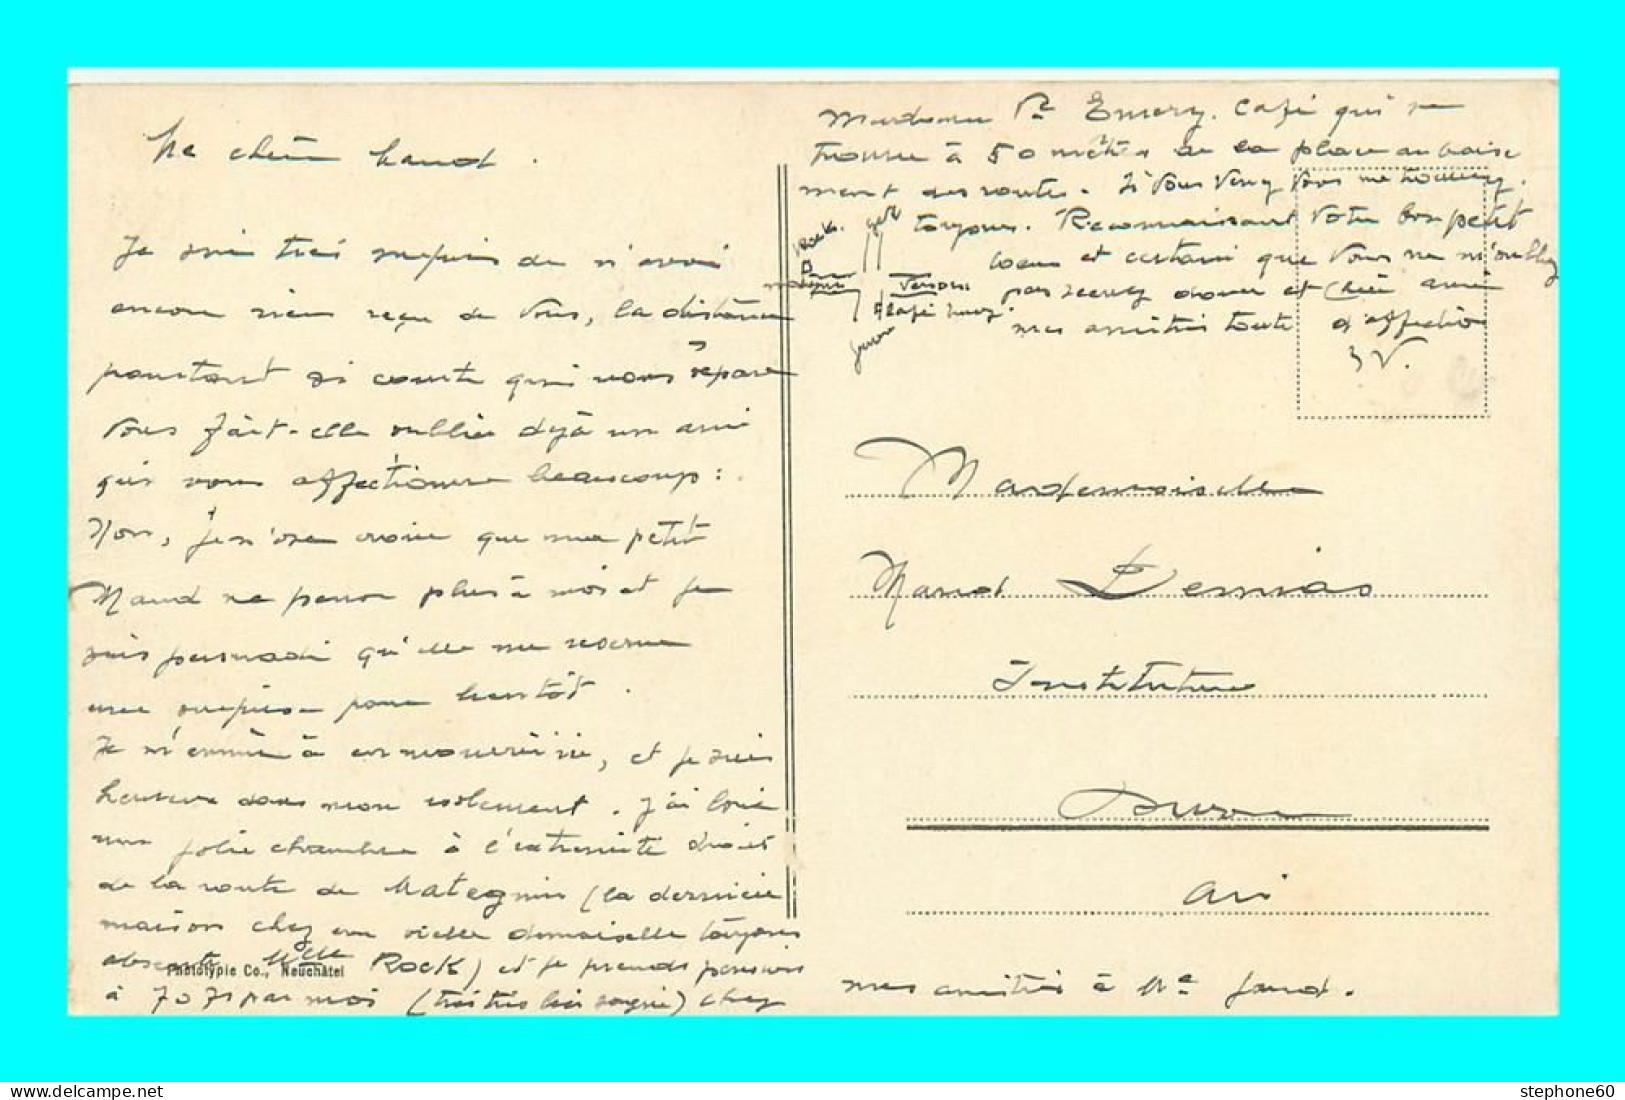 Ma chère Maud.
Je suis très surpris de n'avoir
encore rien reçu de vous, la distance
pourtant si courte qui nous sépare
vous fait-elle oublier déjà un ami
qui vous affectionne beaucoup :
Non, je n'ose croire que ma petit
Maud ne pense plus à moi et je
suis persuadé qu'elle me réserve
une surprise pour bientôt.
Je m'ennuie à et je suis
heureux dans mon isolement. J'ai loué
une jolie chambre à l'extrémité droit
de la route de Mategnin (la dernière
maison chez une vieille demoiselle toujours
absente Melle Rock) et je prends pension
à 70 par mois (très très bien soigné) chez
Phototypie Co., Neuchâtel
Madame Vve Emery. Café qui se
trouve à 50 mètres de la place au croise
ment des routes. Si vous venez vous me trouverez
toujours. Reconnaissant votre bon petit
coeur et certain que vous ne m'oubliez
pas recevez douce et chère amie
mes amitiés toute d'affection
V.
Rock.
Mategnin
Versoix
Café Emery
Mademoiselle
Maud Demias
Institutrice
Ain
mes amitiés à Me Jaud.
stephone60